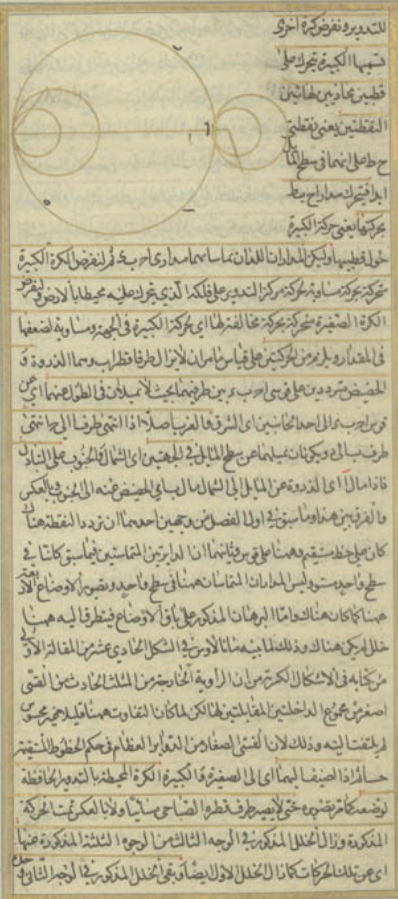 للتدوير ونفرض كرة اخرى
نسميها الكبيرة تتحرك على
قطبين محاذيين لهاتين
النقطتين يعنى نقطتى
ح ط على انهما فى سطح
ابدا فيتحرك مدار ا ح ب ط
بحركتها يعنى حركة الكبيرة
حول قطبيها وليكن المداران اللذان تماسا هما مدارى ا ح ب ثم لنفرض الكرة الكبيرة
متحركة بحركة مساوية لحركة مركز التدوير على فلكه الذى يتحرك عليه محيطا بالارض و
الكرة الصغيرة متحركة بحركة مخالفة لها اى لحركة الكبيرة فى الجهة ومساوية لضعفها
فى المقدار ويلزم من الحركتين على قياس ما مر ان لا يزال طرفا قطر ا ب وهما الذروة و
الحضيض مترددين على قوسى ا ح ب بين طرفيهما بحيث لا يميلان فى الطول عنهما اى عن
قوس ا ح ب الى احد الجانبين اى الشرق والغرب اصلا اذا انتهى طرف ا الى ح انتهى
طرف ب الى ويكونان بميلهما عن سطح المايل فى الجهتين اى الشمال والجنوب على التبادل
فاذا مال ا اى الذروة عن المايل الى الشمال مال ب اى الحضيض عنه الى الجنوب وبالعكس
والفرق بين هذا وما سبق فى اول الفصل من وجهين احدهما ان تردد النقطة هناك
كان على خط مستقيم وههنا على قوس وثانيهما ان الدايرتين المتماستين فيما سبق كانتا فى
سطح واحد مستو وليس المداران المتماسان ههنا فى سطح واحد وتصوير الاوضاع
ههنا كما كان هناك واما البرهان المذكور على باقى الاوضاع فيتطرق اليه ههنا
خلل لم يكن هناك وذلك لما بينه مانالاوس فى الشكل الحادى عشر من المقالة الاولى
من كتابه فى الاشكال الكرية من ان الزاوية الخارجة من المثلث الحادث من القسى
اصغر من مجموع الداخلتين المقابلتين لها لكن لما كان التفاوت ههنا قليلا غير محسوس
لم يلتفت اليه وذلك لان القسى الصغار من الدواير العظام فى حكم الخطوط المستقيمة
حسا فاذا اضيف اليهما اى الى الصغيرة والكبيرة الكرة المحيطة بالتدوير الحافظة
لوضعه كما مر تقريره حتى لا يصير طرف قطره الصباحى مسائيا ولا بالعكس تمت الحركة
المذكورة وزال الخلل المذكور فى الوجه الثالث من الوجوه الثلثة المذكورة عنها
اى عن تلك الحركات كما زال الخلل الاول ايضا وبقى الخلل المذكور فى الوجه الثانى و